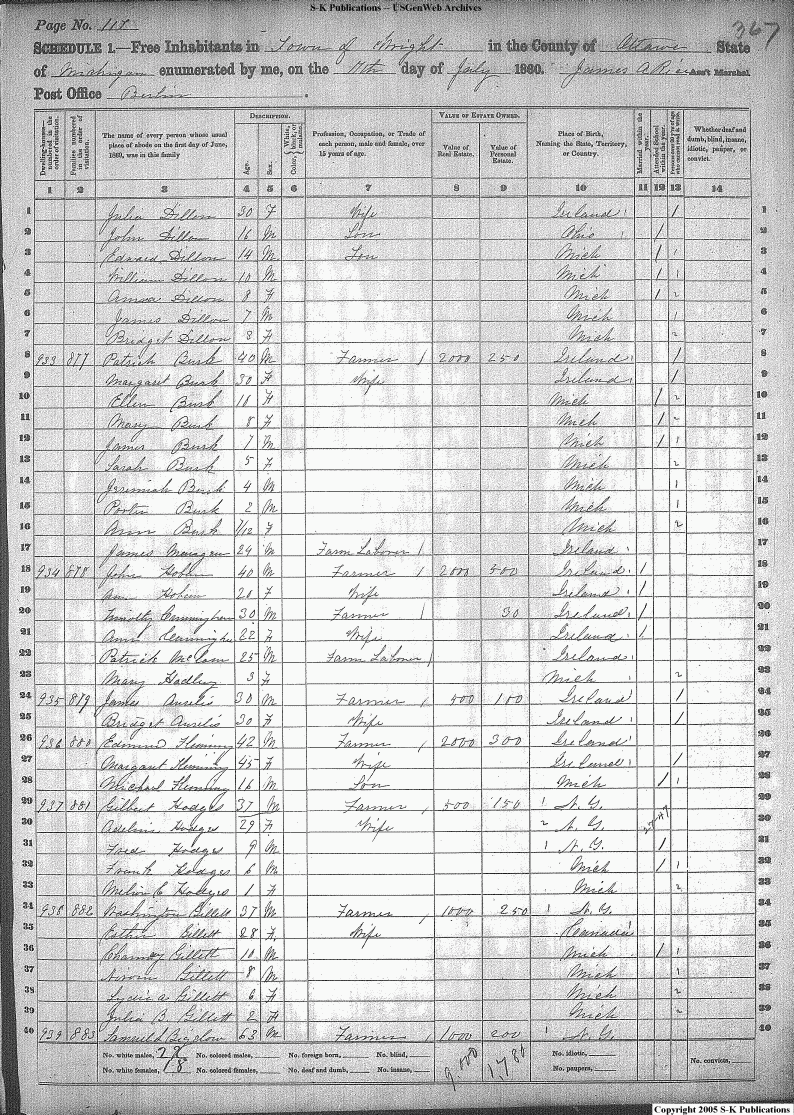 S-K Publications -- USGenWeb Archives
Page No. 117
367
SCHEDULE 1.—Free Inhabitants in Town of Wright in the County of Ottawa State
of Michigan enumerated by me, on the 17th day of July 1860. James A Ass't Marshal
Post Office Berlin
Dwelling-houses numbered in the order of visitation.
Families numbered in the order of visitation.
The name of every person whose usual place of abode on the first day of June, 1860, was in this family
DESCRIPTION.
Age.
Sex.
Color, White, black, or mulatto.
Profession, Occupation, or Trade of each person, male and female, over 15 years of age.
VALUE OF ESTATE OWNED.
Value of Real Estate.
Value of Personal Estate.
Place of Birth, Naming the State, Territory, or Country.
Married within the year.
Attended School within the year.
Whether deaf and dumb, blind, insane, idiotic, pauper, or convict.
1 2 3 4 5 6 7 8 9 10 11 12 13 14
1 Julia Dillon 30 F Wife Ireland / 1
2 John Dillon 16 M Son Ohio / 2
3 Edward Dillon 14 M Son Mich / 1 3
4 William Dillon 10 M Mich / 1 4
5 Dillon 8 F Mich / 2 5
6 James Dillon 7 M Mich 1 6
7 Bridget Dillon 8 F Mich 2 7
8 933 877 Patrick Burk 40 M Farmer / 2000 250 Ireland / 8
9 Margaret Burk 30 F Wife Ireland / 9
10 Ellen Burk F Mich / 2 10
11 Mary Burk 8 F Mich / 2 11
12 James Burk 7 M Mich / 1 12
13 Sarah Burk 5 F Mich 2 13
14 Jeremiah Burk 4 M Mich 1 14
15 Burk 2 M Mich 1 15
16 Ann Burk 1/12 F Mich 2 16
17 James 24 M Farm Laborer / Ireland 17
18 934 878 John 40 M Farmer / 2000 500 Ireland / 18
19 Ann F Wife Ireland / 19
20 Timothy Cunningham 30 M Farmer / 50 Ireland / 20
21 Ann 22 F Wife Ireland / 21
22 Patrick 25 M Farm Laborer / Ireland 22
23 Mary Hadley 3 F Mich 2 23
24 935 879 James 30 M Farmer , 500 100 Ireland / 24
25 Bridget 30 F Wife Ireland / 25
26 936 880 Edmund Fleming 42 M Farmer , 2000 300 Ireland 26
27 Margaret Fleming 45 F Wife Ireland / 27
28 Michael Fleming 16 M Son Mich / 1 28
29 937 881 Gilbert Hodges 37 M Farmer , 500 150 1 N. Y. 29
30 Hodges 29 F Wife 2 N. Y. 30
31 Fred Hodges 9 M 1 N. Y. / 31
32 Frank Hodges 6 M Mich / 1 32
33 Hodges 1 F Mich 2 33
34 938 882 Washington Gillett 37 M Farmer , 1000 250 1 N. Y. 34
35 Esther Gillett 28 F Wife Canada 35
36 Gillett 10 M Mich / 1 36
37 Gillett 8 M Mich 1 37
38 Lydia A Gillett 6 F Mich 2 38
39 Julia B. Gillett 2 F Mich 2 39
40 939 883 Bigelow 63 M Farmer , 1000 200 1 N. Y. 40
No. white males, No. colored males, No. foreign born, No. blind, 9.000 1,780 No. idiotic,
No. white females, 18 No. colored females, No. deaf and dumb, No. insane, No. paupers, No. convicts,
Copyright 2005 S-K Publications